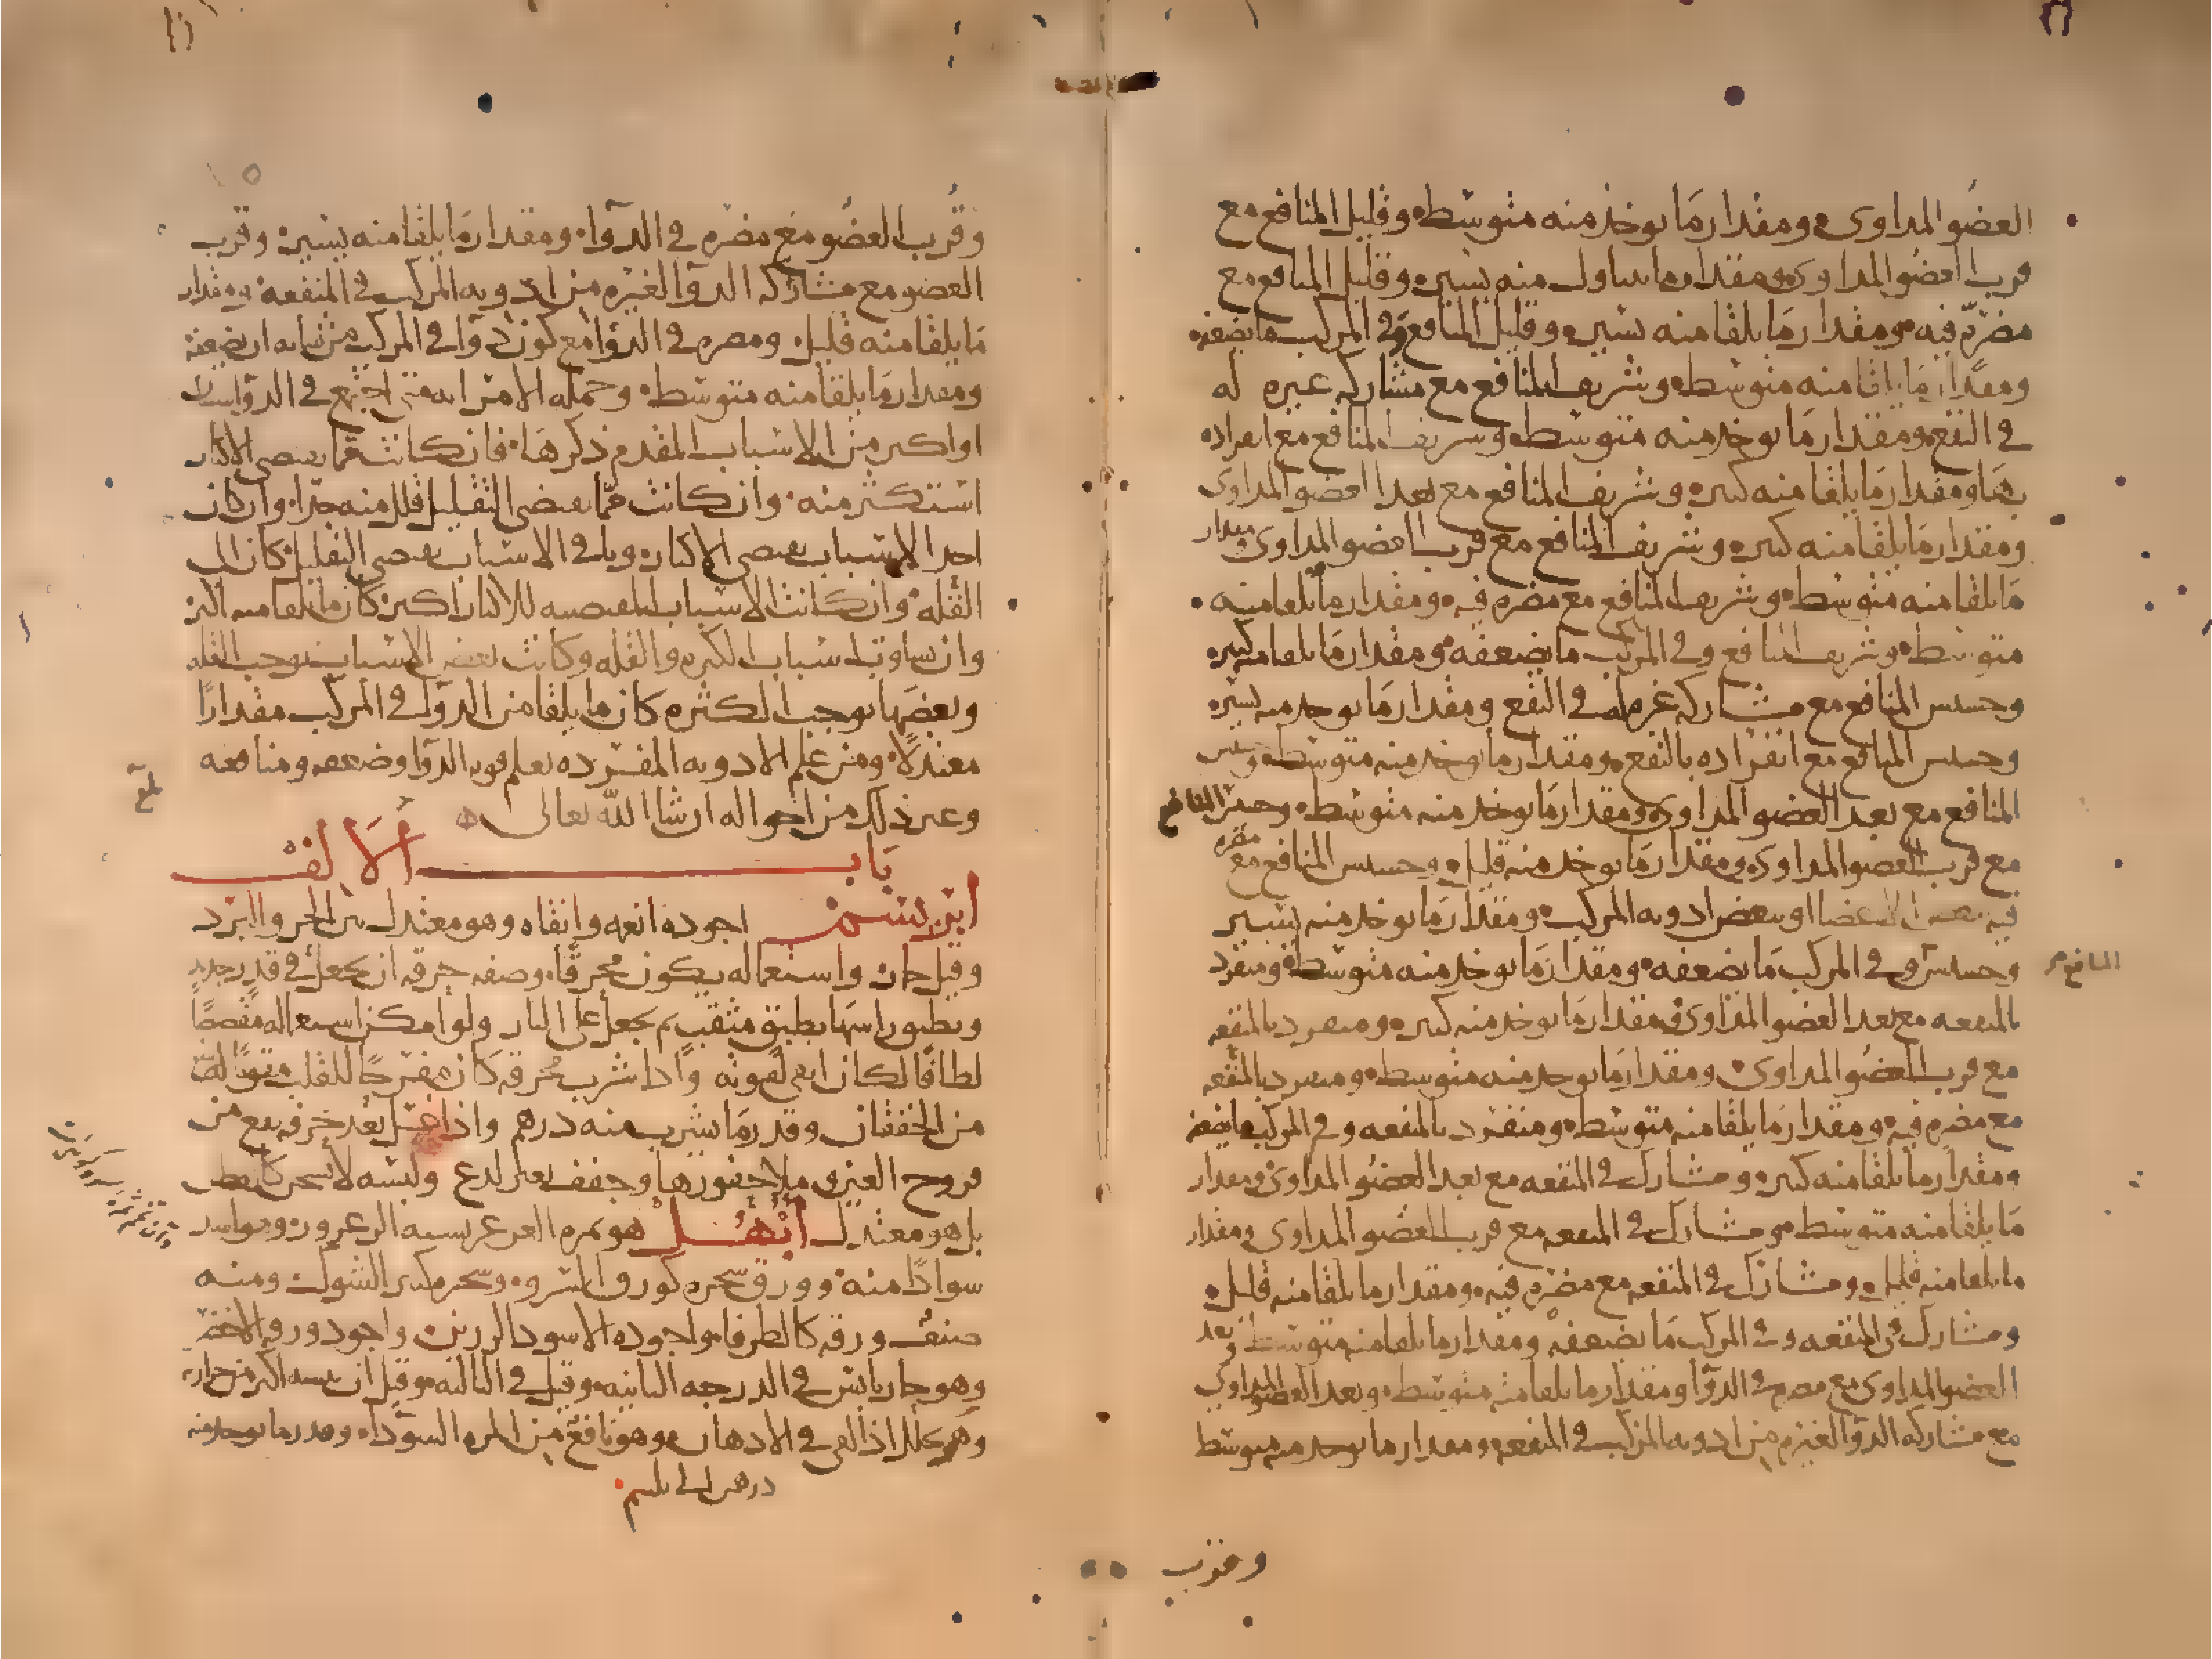 العضو المداوى ومقدار ما يوخذ منه متوسط وقليل المنافع مع
قرب العضو المداوى ومقدار ما يتناول منه يسير وقليل المنافع مع
مضرة فيه ومقدار ما يلقا منه يسير وقليل المنافع وفى المركب ما يضعفه
ومقدار ما يلقا منه متوسط وشريف المنافع مع مشاركه غيره له
فى النفع ومقدار ما يوخذ منه متوسط وشريف المنافع مع انفراده
بها ومقدار ما يلقا منه كثير وشريف المنافع مع بعد العضو المداوى
ومقدار ما يلقا منه كثير وشريف المنافع مع قرب العضو المداوى ومقدار
ما يلقا منه متوسط وشريف المنافع مع مضره فيه ومقدار ما يلقا منه
متوسط وشريف المنافع وفى المركب ما يضعفه ومقدار ما يلقا منه كثير
وخسيس المنافع مع مشاركه غيره له فى النفع ومقدار ما يوخذ منه يسير
وخسيس المنافع مع انفراده بالنفع ومقدار ما يوخذ منه متوسط وخسيس
المنافع مع بعد العضو المداوى ومقدار ما يوخذ منه متوسط وخسيس المنافع
مع قرب العضو المداوى ومقدار ما يوخذ منه قليل وخسيس المنافع مع مضره
فيه ببعض الاعضا او ببعض ادويه المركب ومقدار ما يوخذ منه يسير
وخسيس وفى المركب ما يضعفه ومقدار ما يوخذ منه متوسط ومنفرد
المنافع
بالمنفعه مع بعد العضو المداوى ومقدار ما يوخذ منه كثير ومنفرد بالمنفعه
مع قرب العضو المداوى ومقدار ما يوخذ منه متوسط ومنفرد بالمنفعه
مع مضره فيه ومقدار ما يلقا منه متوسط ومنفرد بالمنفعه وفى المركب ما يضعفه
ومقدار ما يلقا منه كثير ومشارك فى المنفعه مع بعد العضو المداوى ومقدار
ما يلقا منه متوسط ومشارك فى المنفعه مع قرب العضو المداوى ومقدار
ما يلقا منه قليل ومشارك فى المنفعه مع مضره فيه ومقدار ما يلقا منه قليل
ومشارك فى المنفعه وفى المركب ما يضعفه ومقدار ما يلقا منه متوسط وبعد
العضو المداوى مع مضره فى الدوا ومقدار ما يلقا منه متوسط وبعد العضو المداوى
مع مشاركه الدوا لغيره من ادويه المركب فى المنفعه ومقدار ما يوخذ منه متوسط
وقرب
وقرب العضو مع مضره فى الدوا ومقدار ما يلقا منه يسير وقرب
العضو مع مشاركه الدوا لغيره من ادويه المركب فى المنفعه ومقدار
ما يلقا منه قليل ومضره فى الدوا مع كون دوا فى المركب من شانه ان يضعفه
ومقدار ما يلقا منه متوسط وجمله الامر انه متى اجتمع فى الدوا سببان
او اكثر من الاسباب المقدم ذكرها فان كانت مما يقتضى الاكثار
استكثر منه وان كانت مما يقتضى التقليل قلل منه جدا وان كان
احد الاسباب يقتضى الاكثار وباقى الاسباب يقتضى التقليل كان الى
القله وان كانت الاسباب المقتضيه للاكثار اكثر كان ما يلقا منه اكثر
وان تساوت اسباب الكثره والقله وكانت بعض الاسباب توجب القله
وبعضها توجب الكثره كان ما يلقا من الدوا فى المركب مقدارا
معتدلا ومن علم الادويه المفرده يعلم قوه الدوا وضعفه ومنافعه
وغير ذلك من احواله ان شا الله تعالى
باب الالف
ابريسم اجوده انعمه وانقاه وهو معتدل بين الحر والبرد
وقيل حار واستعماله يكون محرقا وصفه حرقه ان يجعل فى قدر جديد
ويطبق راسها بطبق مثقب ثم يجعل على النار ولو امكن استعماله مقصصا
لطافا لكان ابقى لقوته واذا شرب محرقه كان مفرحا للقلب مقويا له
من الخفقان وقدر ما شرب منه درهم واذا غسل بعد حرقه نفع من
قروح العين وملا حفورها وجفف بغير لدع ولبسه لا يسخن كالقطن
بل هو معتدل ابهل هو ثمره العرعر يشبه الزعرور وهو اشد
سوادا منه وورق شجره كورق السرو وشجره كثير الشوك ومنه
صنف ورقه كالطرفا واجوده الاسود الرزين واجود ورقه الاخضر
وهو حار يابس فى الدرجه الثانيه وقيل فى الثالثه وقيل ان يبسه اكثر من حراره
وهو يحلل اذا القى فى الادهان وهو نافع من المره السودا وقدر ما يوخذ منه
درهم الى ثلثه